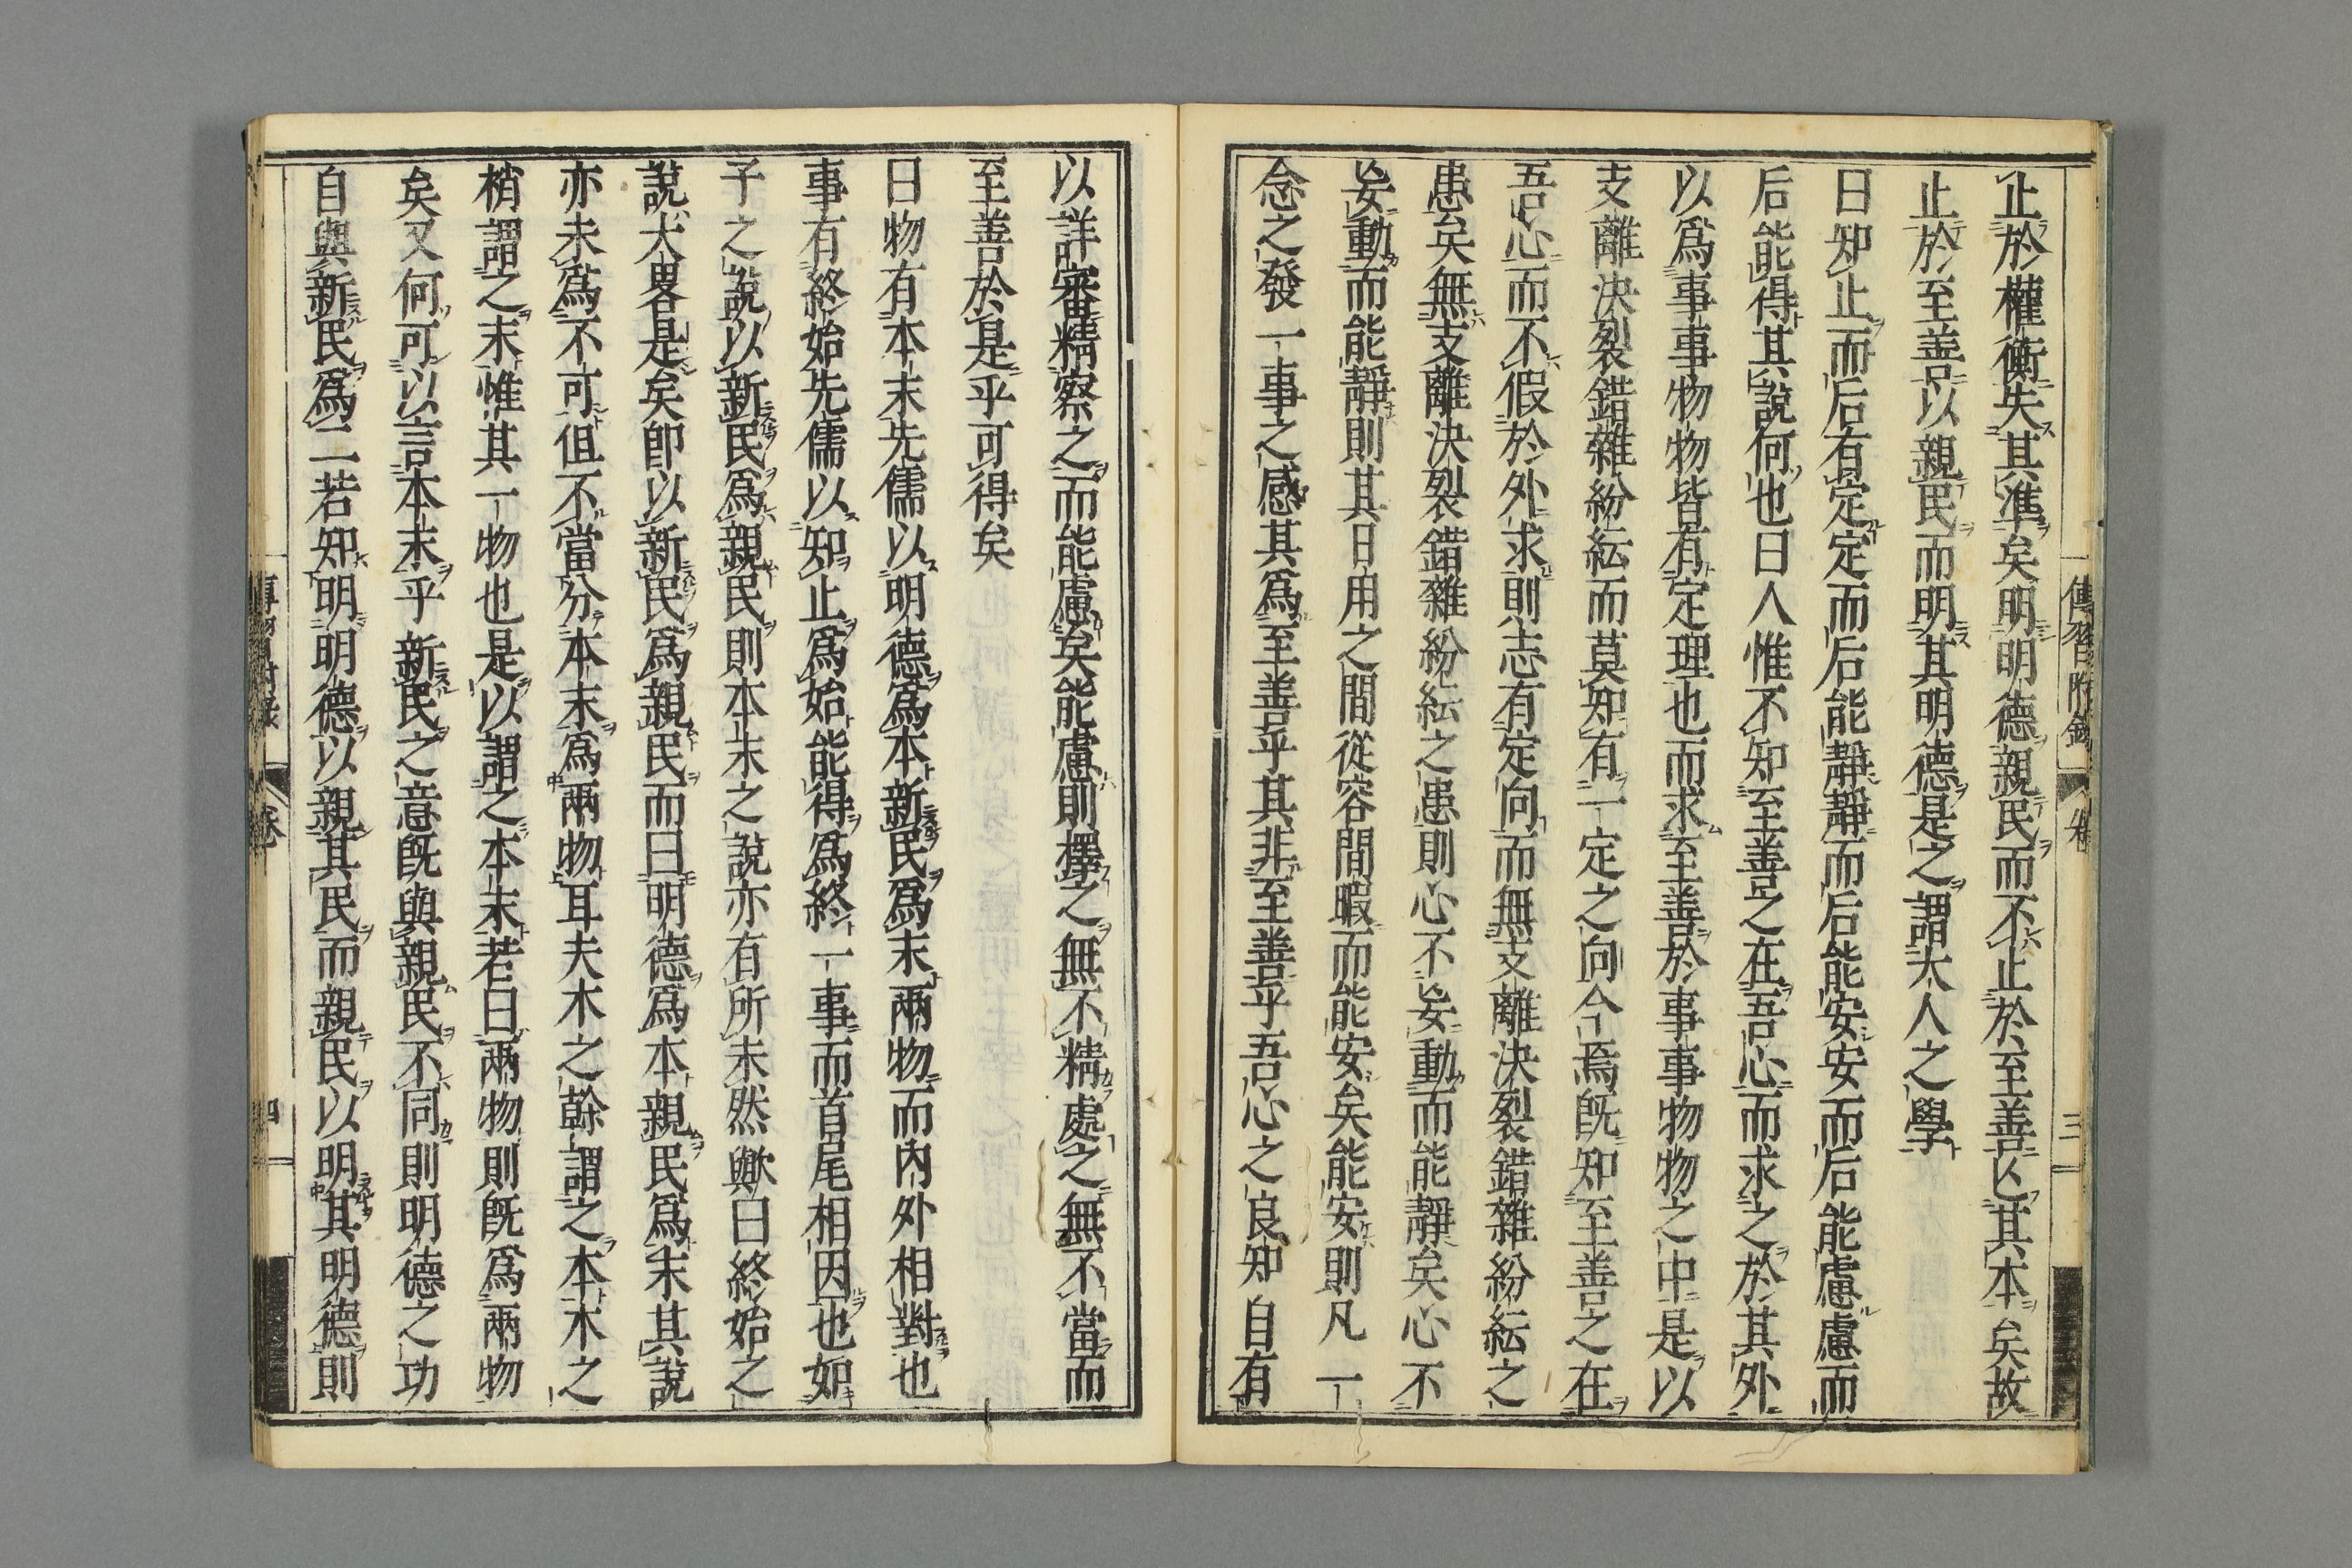 止於權衡失其準矣明明德親民而不止於至善亾其本矣故
止於至善以親民而明其明德是之謂大人之學
曰知止而后有定定而后能靜靜而后能安安而后能慮慮而
后能得其說何也曰人惟不知至善之在吾心而求之於其外
以爲事事物物皆有定理也而求至善於事事物物之中是以
支離決裂錯雜紛紜而莫知有一定之向今焉旣知至善之在
吾心而不假於外求則志有定向而無支離決裂錯雜紛紜之
患矣無支離決裂錯雜紛紜之患則心不妄動而能靜矣心不
妄動而能靜則其日用之間從容閒暇而能安矣能安則凡一
念之發一事之感其爲至善乎其非至善乎吾心之良知自有
傳習附錄
卷
三
以詳審精察之而能慮矣能慮則擇之無不精處之無不當而
至善於是乎可得矣
曰物有本末先儒以明德爲本新民爲末兩物而內外相對也
事有終始先儒以知止爲始能得爲終一事而首尾相因也如
子之說以新民爲親民則本末之說亦有所未然歟曰終始之
說大畧是矣卽以新民爲親民而曰明德爲本親民爲末其說
亦未爲不可但不當分本末爲兩物耳夫木之幹謂之本木之
梢謂之末惟其一物也是以謂之本末若曰兩物則旣爲兩物
矣又何可以言本末乎新民之意旣與親民不同則明德之功
自與新民爲二若知明明德以親其民而親民以明其明德則
四